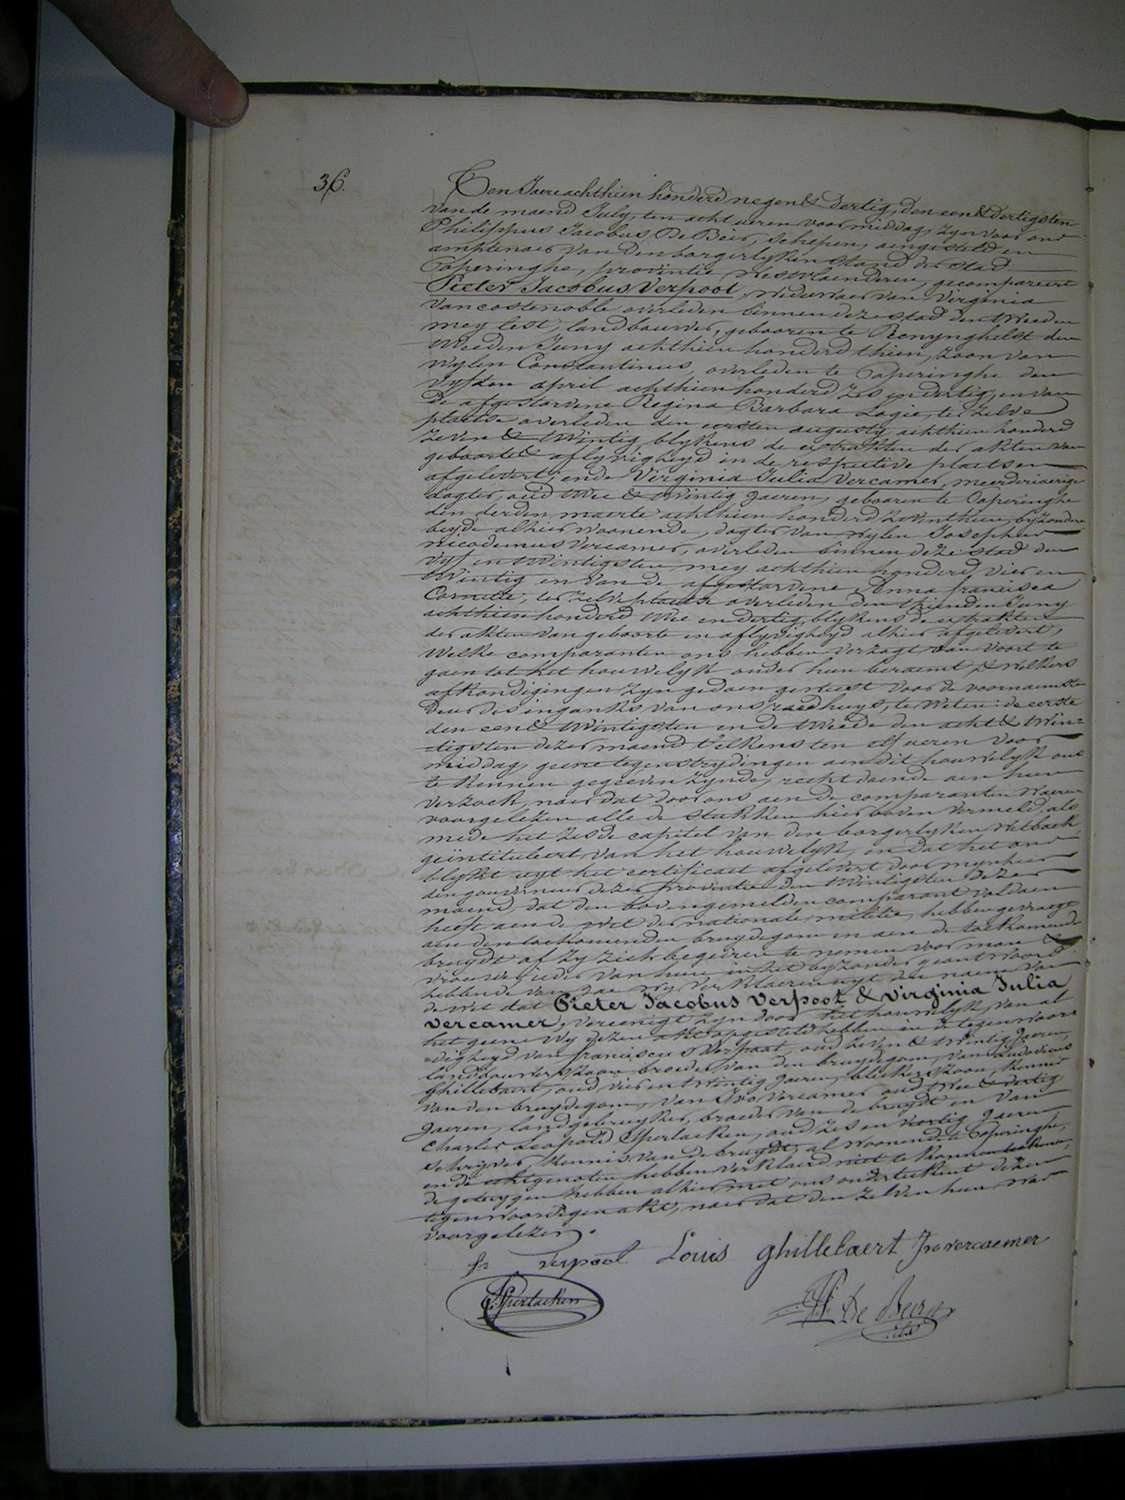 36.
Ten Jaere achthien honderd negen & dertig, den een & dertigsten
van de maend July, ten acht ueren voor middag, zyn voor ons
Philippus Jacobus De Beir, Schepen, aengesteld en
amptenaer van den borgerlyken Stand der Stad
Poperinghe, provintie Westvlaenderen, gecompareert
Pieter Jacobus Verpoot, weduwaer van Virginia
Vancostenoble overleden binnen deze stad den tweeden
mey lest, landbouwer, gebooren te Renynghelst den
tweeden Juny achthien honderd thien, zoon van
wylen Constantinus, overleden te Poperinghe den
vyfden april achthien honderd zes en dertig, en van
de afgestorvene Regina Barbara Logie, te zelve
plaetse overleden den eersten augusty achthien honderd
zeven & twintig, blykens de extrakten der akten van
geboorte & aflyvigheyd in de respective plaetsen
afgelevert; ende Virginia Julia Vercamer, meerderjaerige
dogter, oud twee & twintig jaeren, gebooren te Poperinghe
den derden maerte achthien honderd zeventhien, byzondere
beyde alhier woonende, dogter van wylen Josephus
nicodemus Vercamer, overleden binnen deze stad den
vyf en twintigsten mey achthien honderd vier en
twintig en van de afgestorvene Anna francisca
Cornette, ter zelve plaetse overleden den thienden Juny
achthien honderd twee en dertig, blykens de extrakten
der akten van geboorte en aflyvigheyd alhier afgelevert;
Welke comparanten ons hebben verzogt van voort te
gaen tot het houwelyk onder hun beraemt & welkers
afkondigingen zyn gedaen geweest voor de voornaemste
deur des ingangs van ons raedhuys, te weten: de eerste
den een & twintigsten en de tweede den acht & twin-
tigsten dezer maend telkens ten elf ueren voor
middag, geene tegenstrydingen aen dit houwelyk ons
te kennen gegeeven zynde, recht doende aen hun
verzoek, naer dat door ons aen de comparanten waeren
voorgelezen alle de stukken hier boven vermeld, als
mede het zesde capitel van den borgerlyken wetboek
geïntituleert van het houwelyk, en dat het ons
blykt uyt het certificaet afgelevert door mynheer
den gouverneur dezer provintie den twintigsten dezer
maend, dat den bovengemelden comparant voldaen
heeft aen de wet der nationale militie, hebben gevraegt
aen den toekomenden bruydegom en aen de toekomende
bruydt of zy zich begeiren te nemen voor man &
vrouw; ieder van hun in het byzonder geantwoord
hebbende van jae wy verklaeren uyt den naem van
de wet dat Pieter Jacobus Verpoot & Virginia Julia
Vercamer, vereenigt zyn door het houwelyk, van al
het geene wy dezen akt opgesteld hebben in de tegenwoor-
digheyd van franciscus Verpoot, oud zeven & twintig jaeren,
landbouwers zoon, broeder van den bruydegom, van Ludovicus
Ghillebaert, oud vier en twintig jaeren, blekers zoon, kennis
van den bruydegom, van Ivo Vercamer oud twee & dertig
jaeren, landgebruyker, broeder van de bruydt en van
Charles Leopold Sperlaeken, oud zes en veertig jaeren
schryver, kennis van de bruydt, al woonende te Poperinghe,
en de echtgenoten hebben verklaerd niet te konnen
de getuygen hebben alhier met ons onderteekent dezen
tegenwoordigen akt, naer dat den zelven hun was
voorgelezen.
fr verpoot Louis ghillebaert Jv vercaemer
Sperlaeken
De Beir